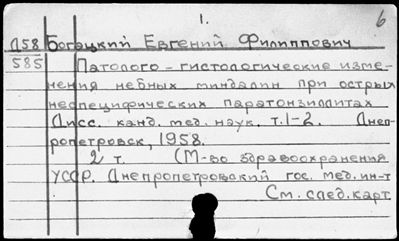 1.
6
Д58 Богацкий Евгений Филиппович
585 Патолого-гистологические изме-
нения небных миндалин при острых
неспецифических паратонзиллитах
Дисс. канд. мед. наук. т.1-2. Днеп-
ропетровск, 1958.
2 т. (М-во здравоохранения
УССР. Днепропетровский гос. мед. ин-т
См. след. карт